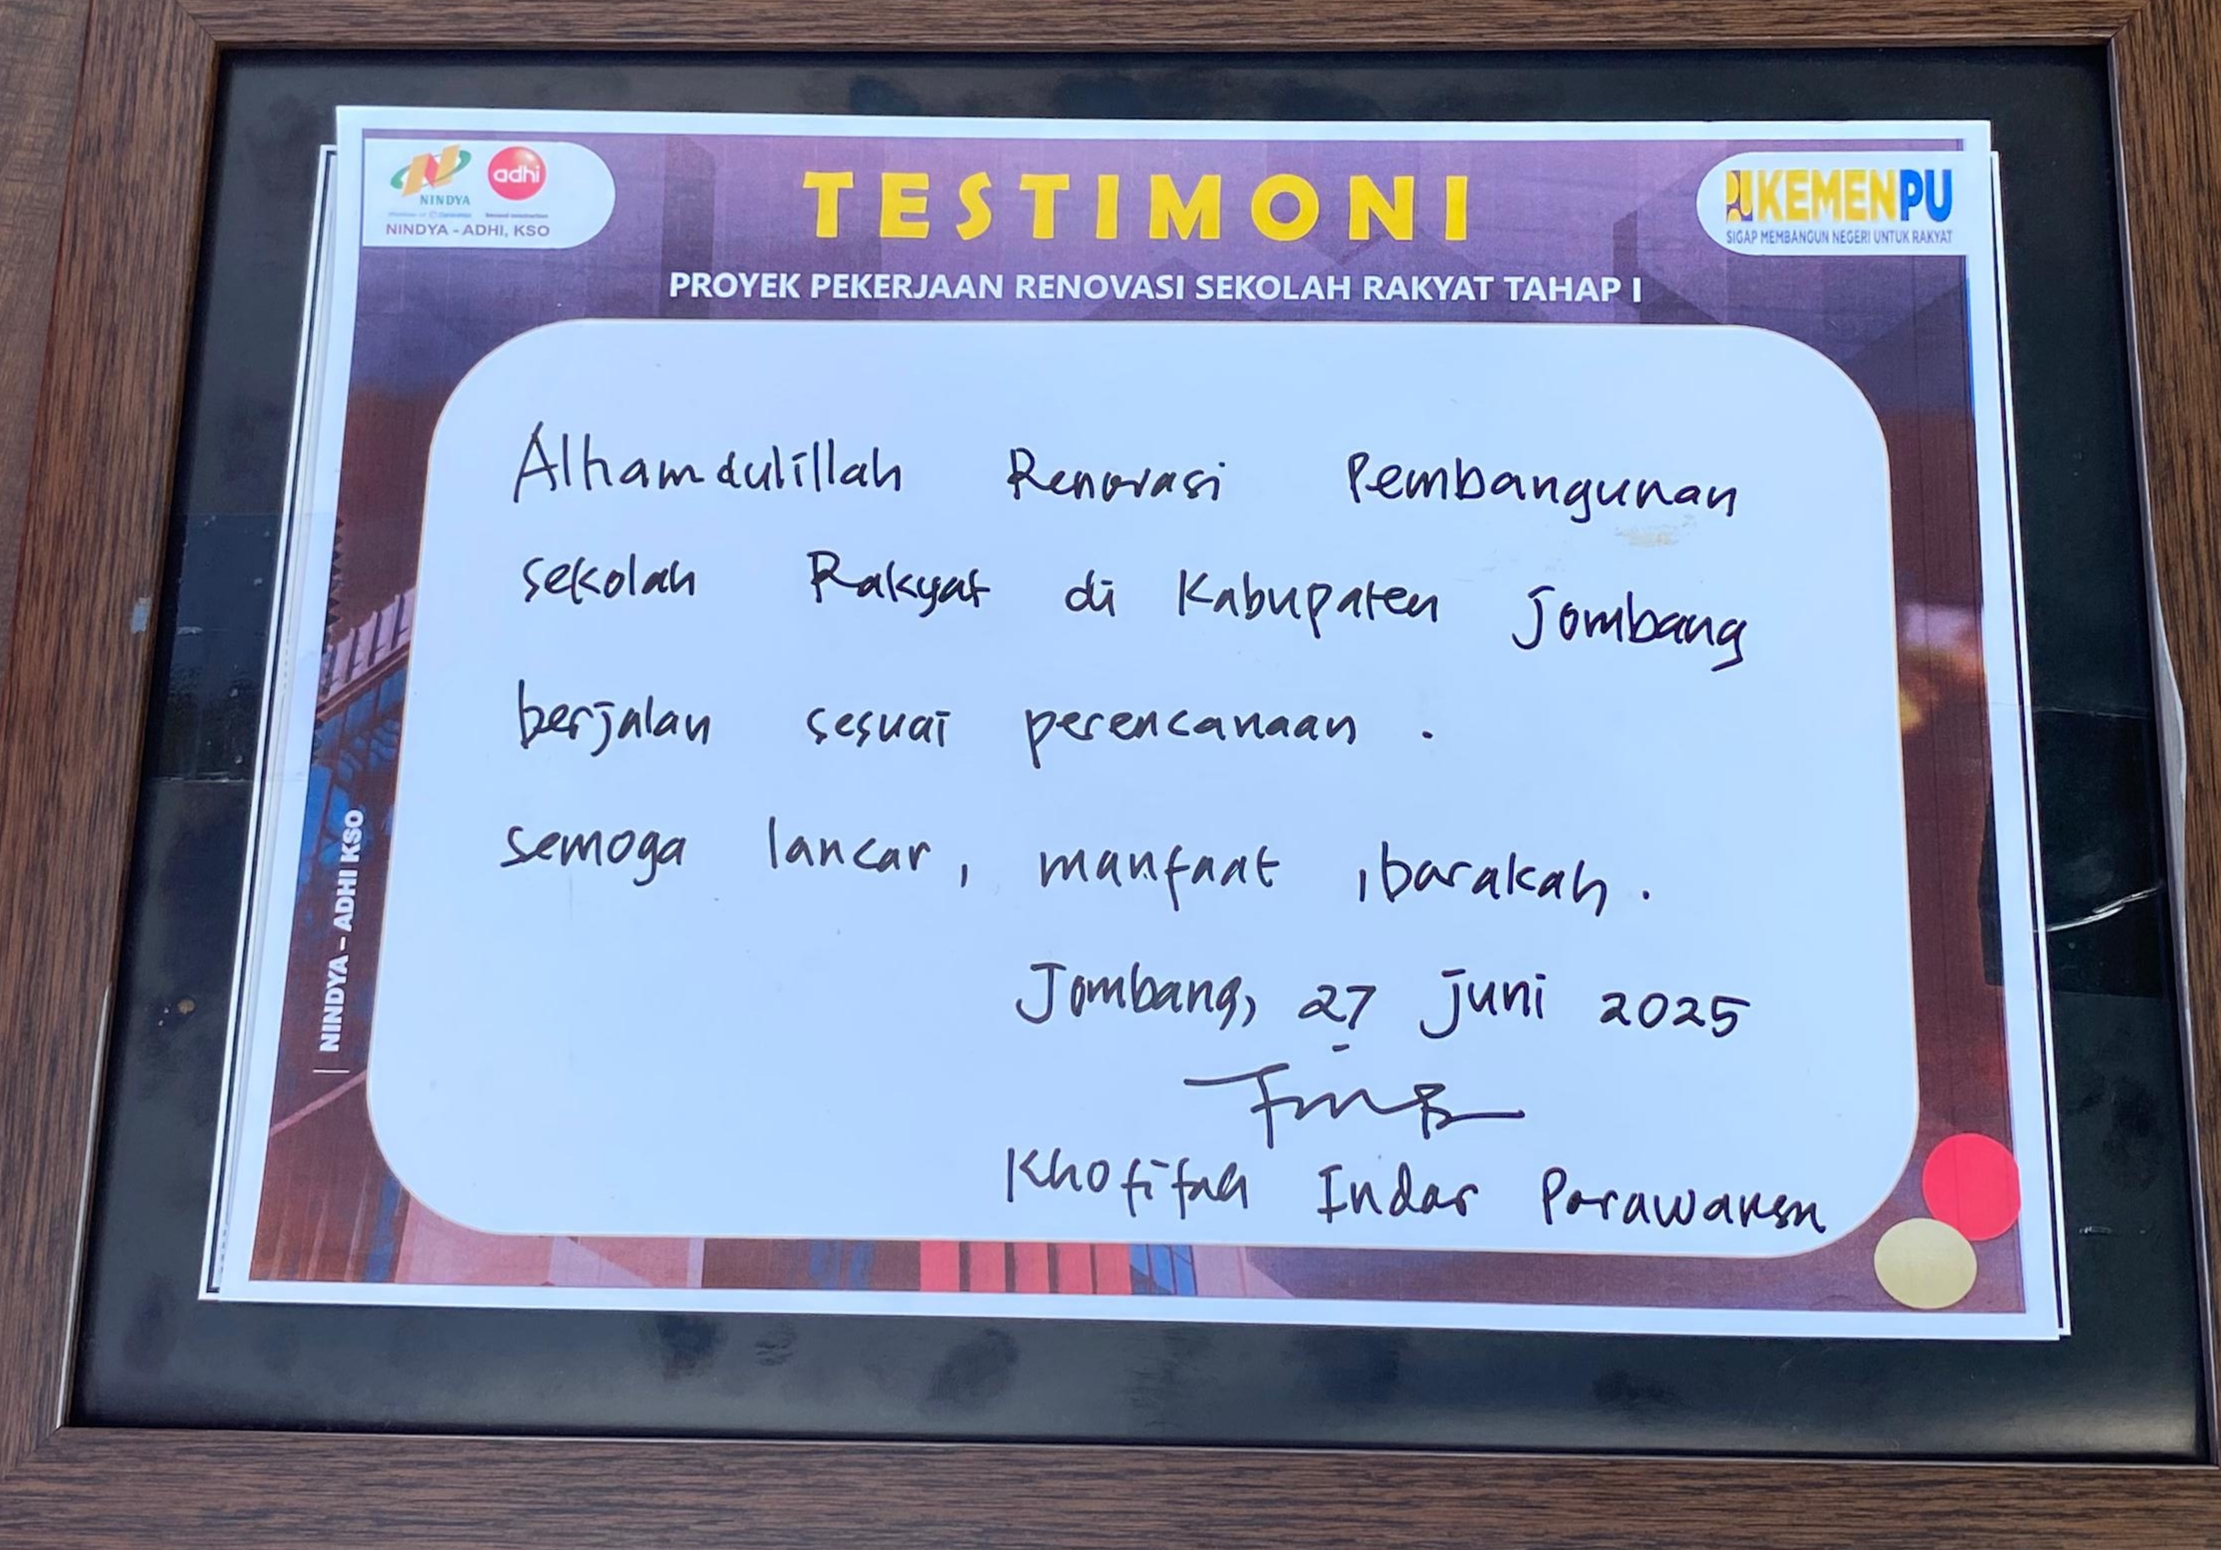 NINDYA
adhi
NINDYA - ADHI, KSO
TESTIMONI
KEMENPU
SIGAP MEMBANGUN NEGERI UNTUK RAKYAT
PROYEK PEKERJAAN RENOVASI SEKOLAH RAKYAT TAHAP I
Alhamdulillah Renovasi Pembangunan
sekolah Rakyat di Kabupaten Jombang
berjalan sesuai perencanaan .
semoga lancar, manfaat , barakah.
Jombang, 27 Juni 2025
Khofifah Indar Parawansa
NINDYA - ADHI KSO